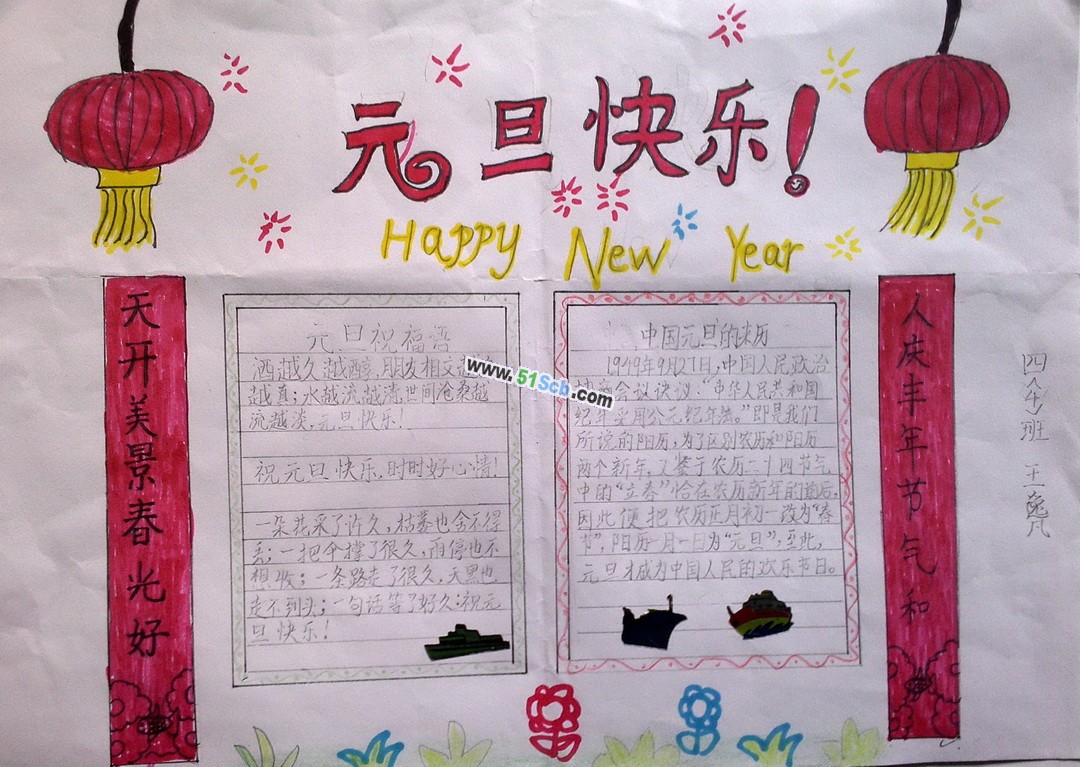 元旦快乐!
Happy New Year
天开美景春光好
元旦祝福语
酒越久越醇,朋友相交越
越真;水越流越清,世间沧桑越
流越淡。元旦快乐!
祝元旦快乐,时时好心情!
一朵花采了许久,枯萎也舍不得
丢;一把伞撑了很久,雨停也不
想收;一条路走了很久,天黑也
走不到头;一句话等了好久:祝元
旦快乐!
中国元旦的来历
1949年9月27日,中国人民政治
会议决议:“中华人民共和国
纪年采用公元纪年法。”即是我们
所说的阳历,为了区别农历和阳历
两个新年,又鉴于农历二十四节气
中的“立春”恰在农历新年的前后,
因此便把农历正月初一改为“春
节”,阳历一月一日为“元旦”,至此,
元旦才成为中国人民的欢乐节日。
www.51Scb.com
人庆丰年节气和
四(4)班
王